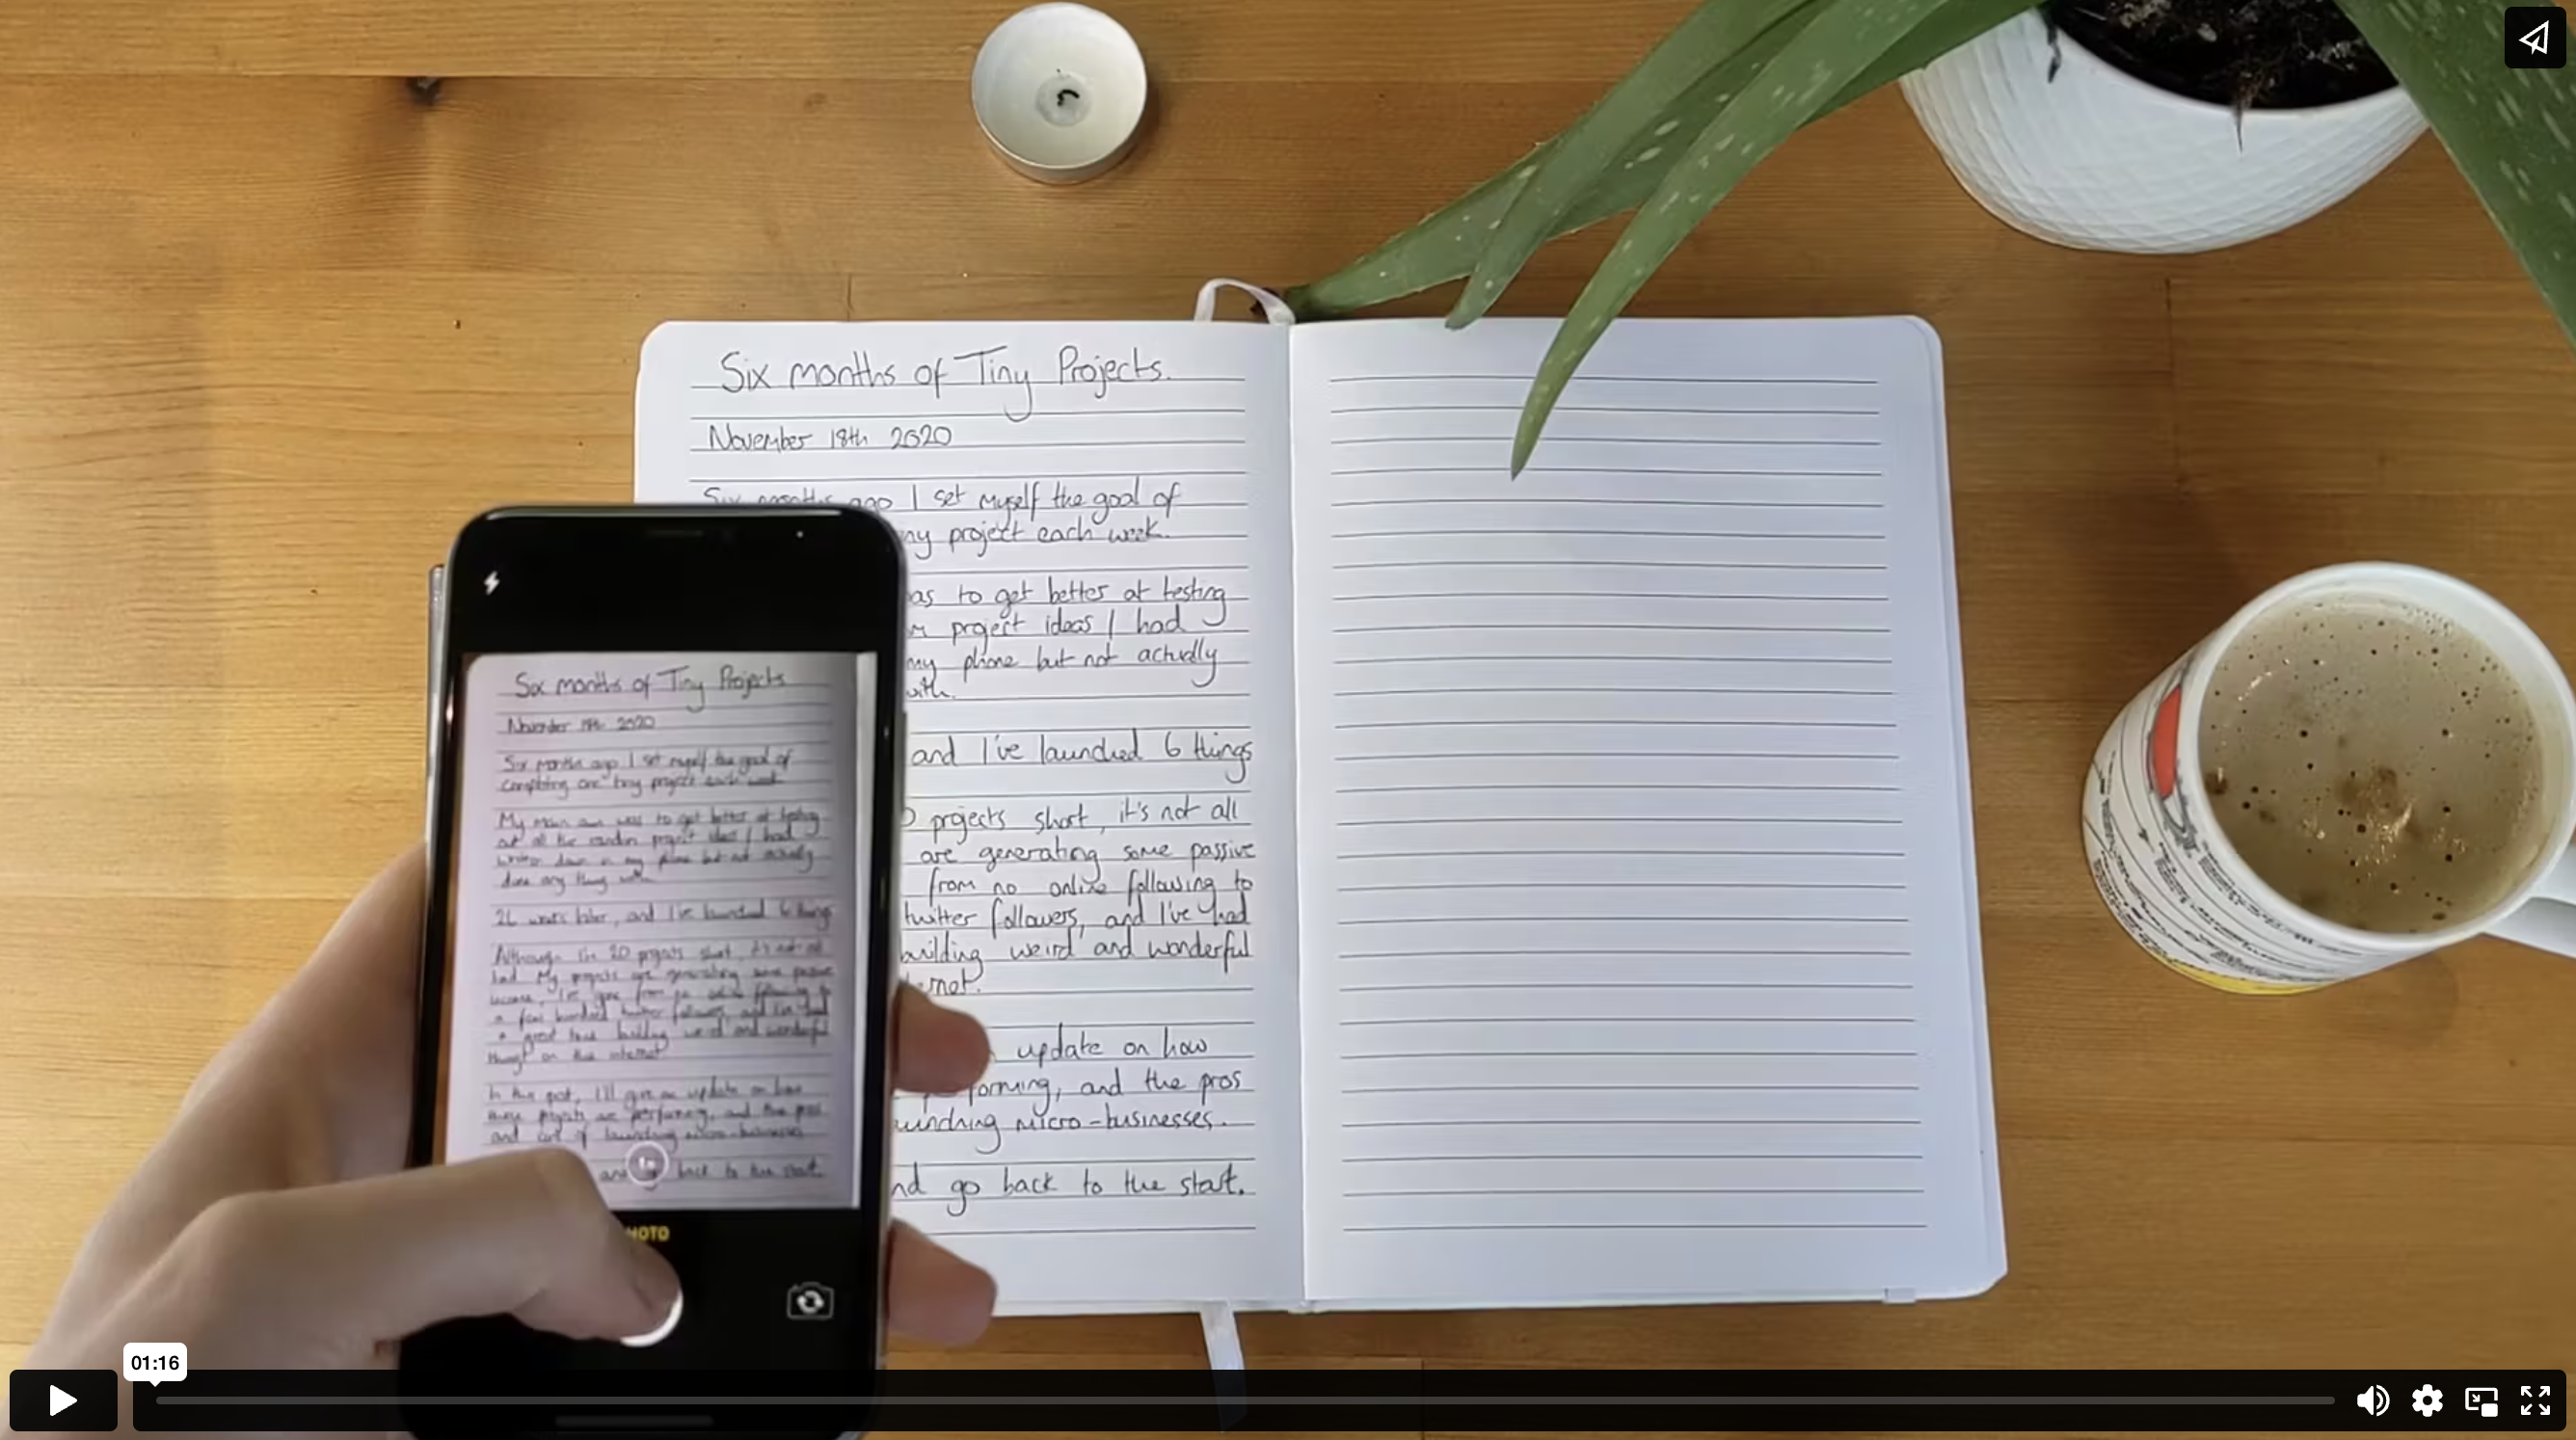 Six months of Tiny Projects.
November 18th 2020
Six months ago I set myself the goal of
ny project each week.
as to get better at testing
project ideas I had
my phone but not actually
with.
and I've launched 6 things
projects short, it's not all
are generating some passive
from no online following to
twitter followers, and I've had
building weird and wonderful
ernet.
update on how
forming, and the pros
unching micro-businesses.
nd go back to the start.
Six months of Tiny Projects
November 18th 2020
Six months ago I set myself the goal of
completing one tiny project each week
My main aim was to get better at testing
out all the random project ideas I had
written down in my phone but not actually
done any thing with
26 weeks later, and I've launched 6 things
Although I'm 20 projects short, it's not all
bad. My projects are generating some passive
income, I've gone from no online following to
a few hundred twitter followers, and I've had
a great time building weird and wonderful
things on the internet
In this post, I'll give an update on how
these projects are performing, and the pros
and cons of launching micro-businesses
and back to the start.
HOTO
01:16